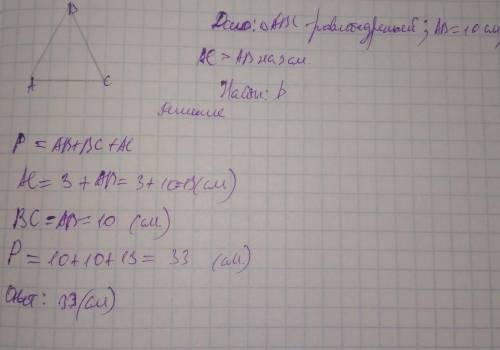 B
A C
Дано: △ABC - равнобедренный; AB = 10 см;
AC > AB на 3 см
Найти: P
Решение
P = AB + BC + AC
AC = 3 + AB = 3 + 10 = 13 (см)
BC = AB = 10 (см)
P = 10 + 10 + 13 = 33 (см)
Ответ: 33 (см)